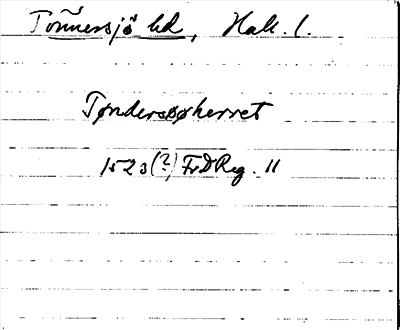 Tönnersjö hd, Hall. l.
Tøndersøøherret
1523(?) FrDReg. 11